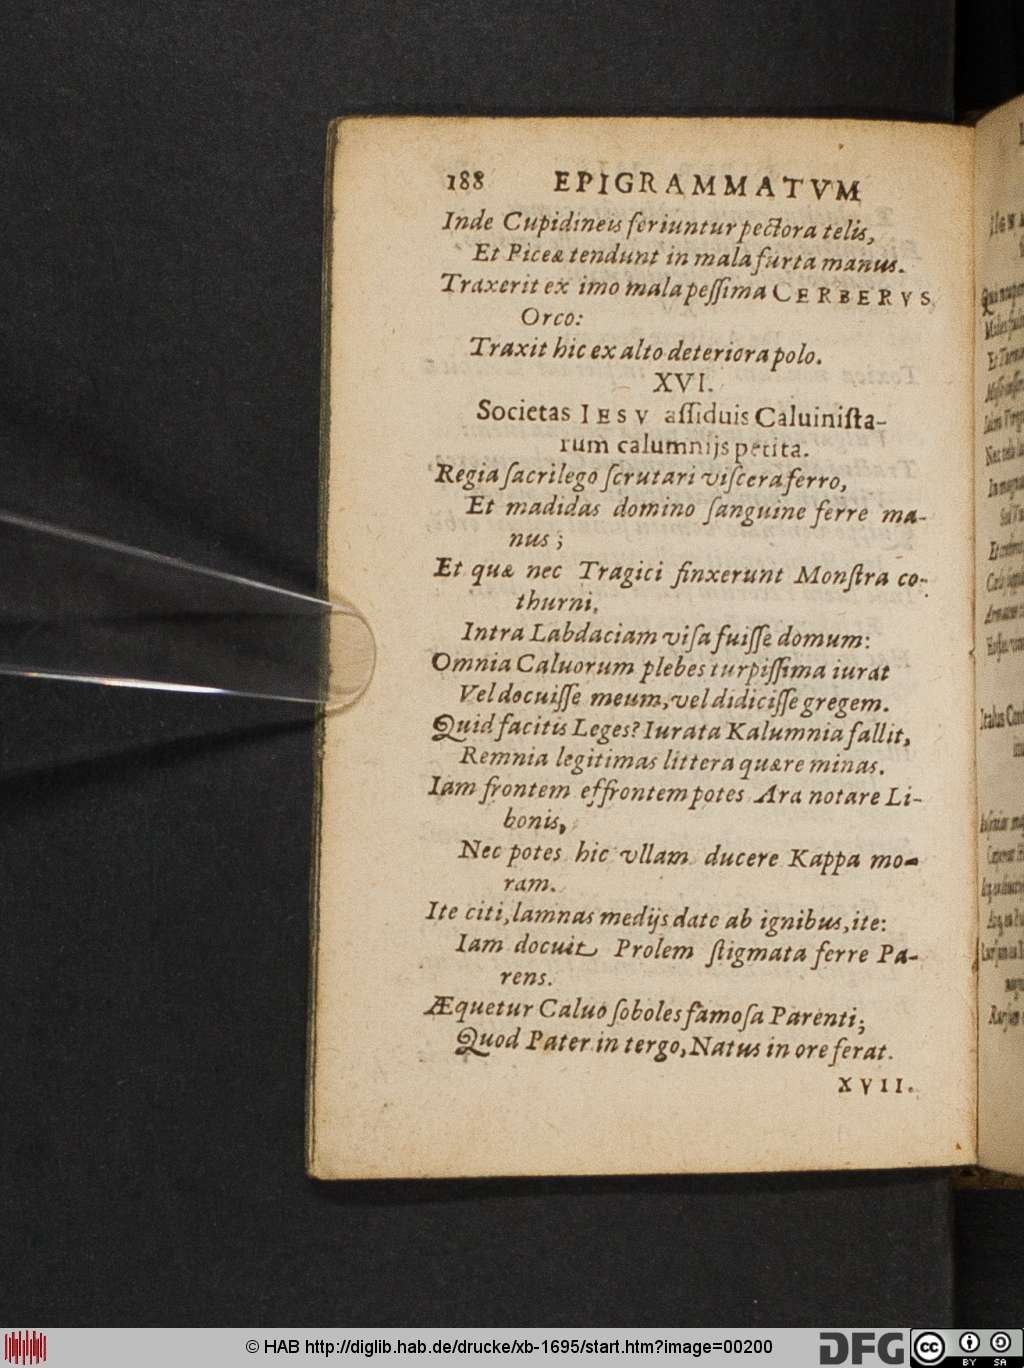 188 EPIGRAMMATVM
Inde Cupidineis feriuntur pectora telis,
Et Piceæ tendunt in mala furta manus.
Traxerit ex imo mala peſſima CERBERVS
Orco:
Traxit hic ex alto deteriora polo.
XVI.
Societas IESV aſſiduis Caluiniſta-
rum calumnijs petita.
Regia ſacrilego ſcrutari viſcera ferro,
Et madidas domino ſanguine ferre ma-
nus;
Et quæ nec Tragici finxerunt Monſtra co-
thurni,
Intra Labdaciam viſa fuiſſe domum:
Omnia Caluorum plebes turpiſſima iurat
Vel docuiſſe meum, vel didiciſſe gregem.
Quid facitis Leges? Iurata Kalumnia fallit,
Remnia legitimas littera quære minas.
Iam frontem effrontem potes Ara notare Li-
bonis,
Nec potes hic vllam ducere Kappa mo-
ram.
Ite citi, lamnas medijs date ab ignibus, ite:
Iam docuit Prolem ſtigmata ferre Pa-
rens.
Æquetur Caluo ſoboles famoſa Parenti;
Quod Pater in tergo, Natus in ore ferat.
XVII.
© HAB http://diglib.hab.de/drucke/xb-1695/start.htm?image=00200
DFG
cc
BY SA